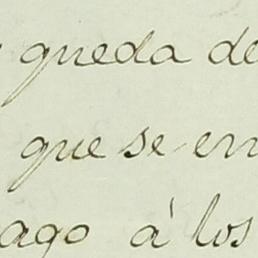 queda de
que se en
ago á los